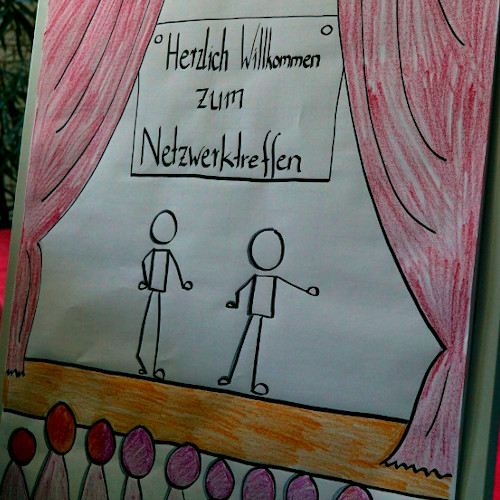 Herzlich Willkommen
zum
Netzwerktreffen